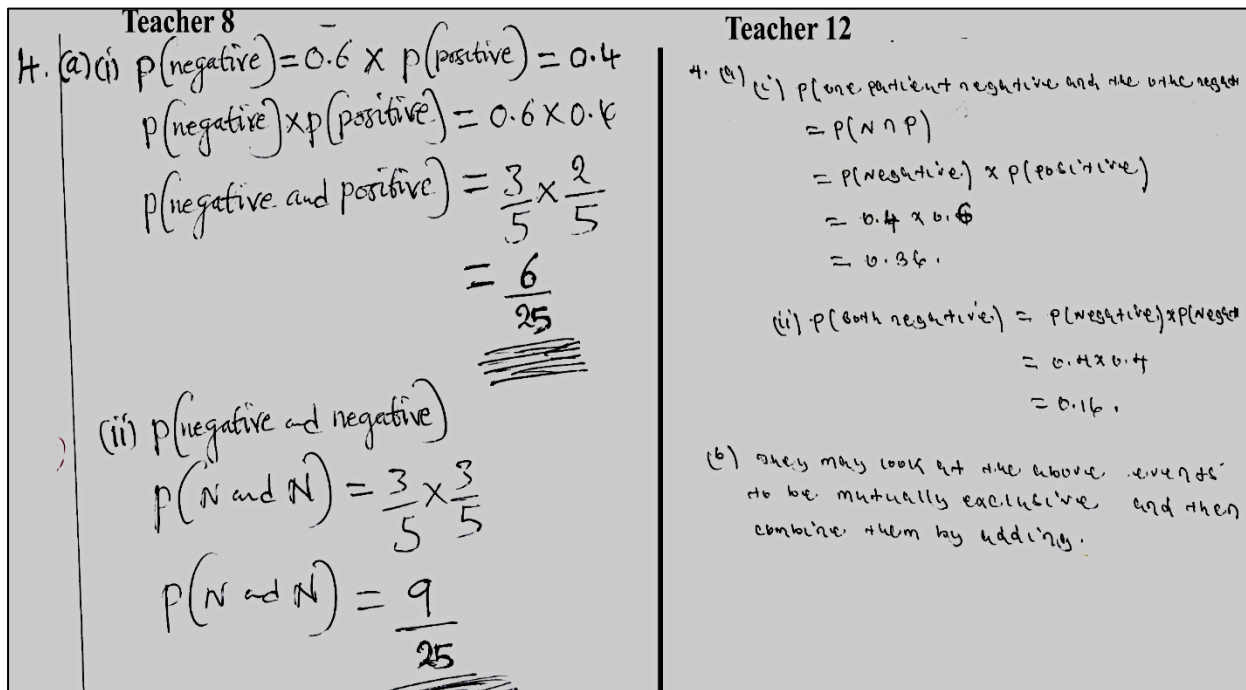 Teacher 8
4. (a) (i) p(negative) = 0.6 x p(positive) = 0.4
p(negative) x p(positive) = 0.6 x 0.4
p(negative and positive) = 3/5 x 2/5
= 6/25
(ii) p(negative and negative)
P(N and N) = 3/5 x 3/5
P(N and N) = 9/25
Teacher 12
4. (a) (i) P(one patient negative and the othe negat
= P(N ∩ P)
= P(Negative) x P(positive)
= 0.4 x 0.6
= 0.36.
(ii) P(Both negative) = P(Negative) x P(Negat
= 0.4 x 0.4
= 0.16.
(b) They may look at the above events
to be mutually exclusive and then
combine them by adding.